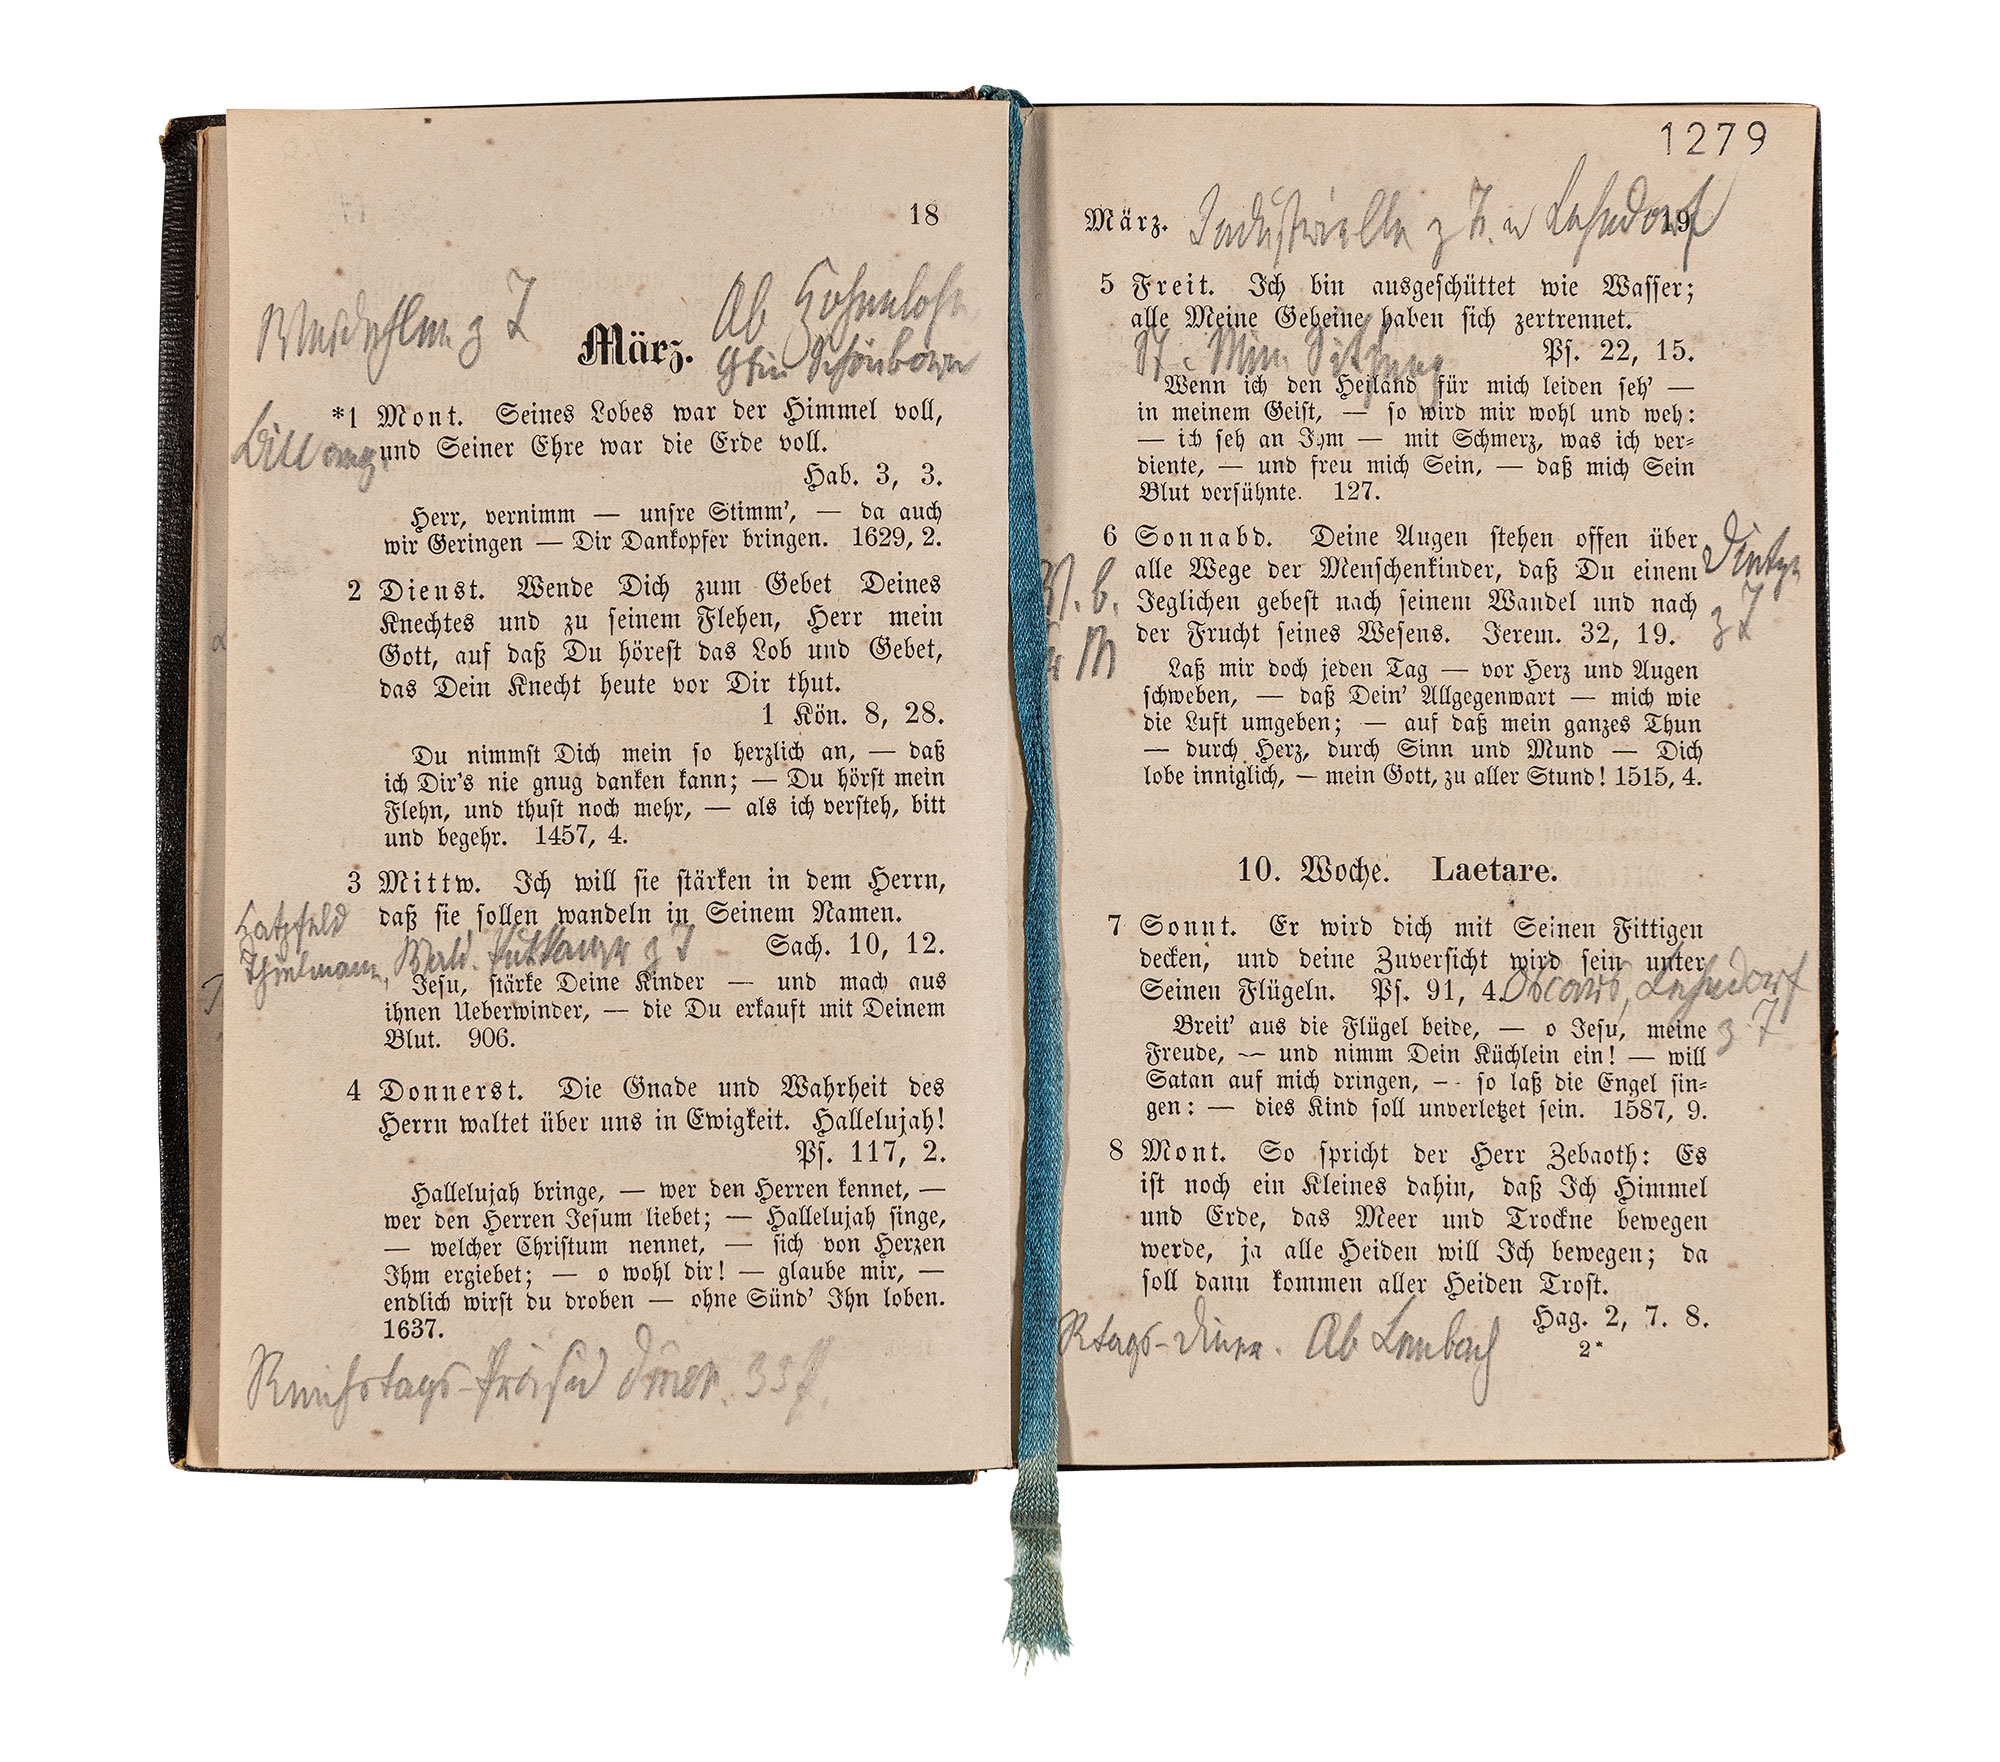 18
Ab Hohenlohe
März.
Gfin Schönborn
*1 Mont. Seines Lobes war der Himmel voll,
und Seiner Ehre war die Erde voll.
Hab. 3, 3.
Herr, vernimm — unsre Stimm', — da auch
wir Geringen — Dir Dankopfer bringen. 1629, 2.
2 Dienst. Wende Dich zum Gebet Deines
Knechtes und zu seinem Flehen, Herr mein
Gott, auf daß Du hörest das Lob und Gebet,
das Dein Knecht heute vor Dir thut.
1 Kön. 8, 28.
Du nimmst Dich mein so herzlich an, — daß
ich Dir's nie gnug danken kann; — Du hörst mein
Flehn, und thust noch mehr, — als ich versteh, bitt
und begehr. 1457, 4.
3 Mittw. Ich will sie stärken in dem Herrn,
daß sie sollen wandeln in Seinem Namen.
Hatzfeld
Sach. 10, 12.
Thielmann, Wald. Puttkamer z T
Jesu, stärke Deine Kinder — und mach aus
ihnen Ueberwinder, — die Du erkauft mit Deinem
Blut. 906.
4 Donnerst. Die Gnade und Wahrheit des
Herrn waltet über uns in Ewigkeit. Hallelujah!
Ps. 117, 2.
Hallelujah bringe, — wer den Herren kennet, —
wer den Herren Jesum liebet; — Hallelujah singe,
— welcher Christum nennet, — sich von Herzen
Ihm ergiebet; — o wohl dir! — glaube mir, —
endlich wirst du droben — ohne Sünd' Ihn loben.
1637.
Reichstags-Präsid Diner. 33 P.
1279
März. 19
Industrielle z T. u Lehndorf
5 Freit. Ich bin ausgeschüttet wie Wasser;
alle Meine Gebeine haben sich zertrennet.
St. Min. Sitzung
Ps. 22, 15.
Wenn ich den Heiland für mich leiden seh' —
in meinem Geist, — so wird mir wohl und weh:
— ich seh an Ihm — mit Schmerz, was ich ver-
diente, — und freu mich Sein, — daß mich Sein
Blut versühnte. 127.
6 Sonnabd. Deine Augen stehen offen über
alle Wege der Menschenkinder, daß Du einem
Jeglichen gebest nach seinem Wandel und nach
der Frucht seines Wesens. Jerem. 32, 19.
z T
Laß mir doch jeden Tag — vor Herz und Augen
schweben, — daß Dein' Allgegenwart — mich wie
die Luft umgeben; — auf daß mein ganzes Thun
— durch Herz, durch Sinn und Mund — Dich
lobe inniglich, — mein Gott, zu aller Stund! 1515, 4.
10. Woche. Laetare.
7 Sonnt. Er wird dich mit Seinen Fittigen
decken, und deine Zuversicht wird sein unter
Seinen Flügeln. Ps. 91, 4.
Oscars, Lehndorf
z T
Breit' aus die Flügel beide, — o Jesu, meine
Freude, — und nimm Dein Küchlein ein! — will
Satan auf mich dringen, — so laß die Engel sin-
gen: — dies Kind soll unverletzet sein. 1587, 9.
8 Mont. So spricht der Herr Zebaoth: Es
ist noch ein Kleines dahin, daß Ich Himmel
und Erde, das Meer und Trockne bewegen
werde, ja alle Heiden will Ich bewegen; da
soll dann kommen aller Heiden Trost.
Hag. 2, 7. 8.
Rtags-Diner. Ab Lenbach
2*